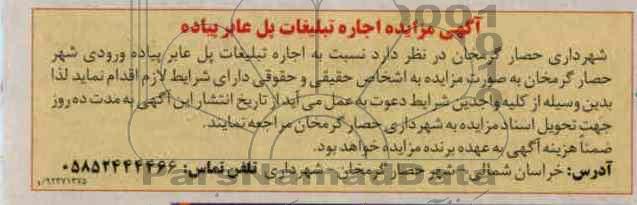 آگهی مزایده اجاره تبلیغات پل عابر پیاده
شهرداری حصار گرمخان در نظر دارد نسبت به اجاره تبلیغات پل عابر پیاده ورودی شهر
حصار گرمخان به صورت مزایده به اشخاص حقیقی و حقوقی دارای شرایط لازم اقدام نماید لذا
بدین وسیله از کلیه واجدین شرایط دعوت به عمل می آید از تاریخ انتشار این آگهی به مدت ده روز
جهت تحویل اسناد مزایده به شهرداری حصار گرمخان مراجعه نمایند.
ضمنا هزینه آگهی به عهده برنده مزایده خواهد بود.
آدرس: خراسان شمالی - شهر حصار گرمخان - شهرداری تلفن تماس: ۰۵۸۵۲۴۴۴۴۶۶
۹۲۲۷۱۳۷۵/و
ParsNamadData